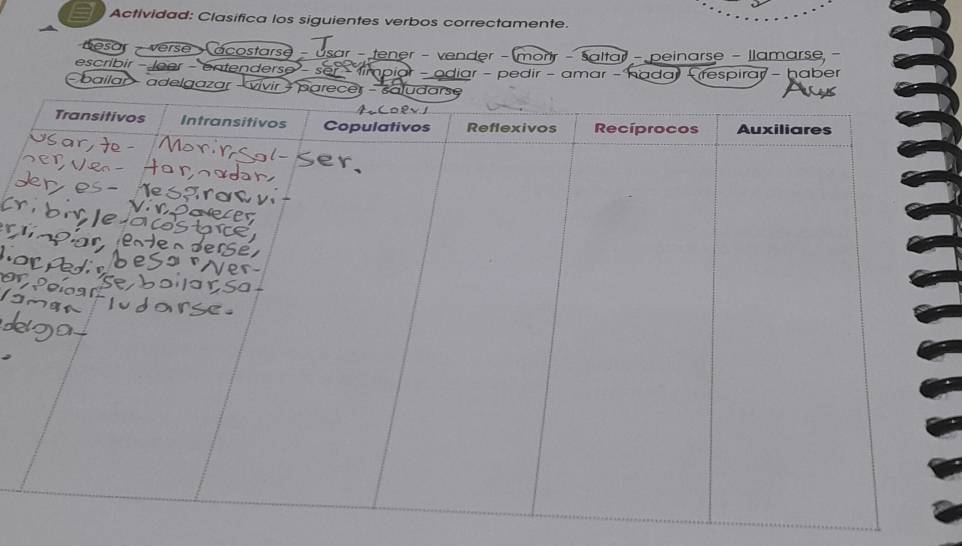 Actividad: Clasifica los siguientes verbos correctamente.
besar - verse - acostarse - usar - tener - vender - morir - saltar - peinarse - llamarse, -
escribir - leer - entenderse - ser - limpiar - odiar - pedir - amar - nadar - respirar - haber
bailar - adelgazar - vivir - parecer - saludarse
Aux
Transitivos Intransitivos Copulativos Reflexivos Recíprocos Auxiliares
Usar, te- Morir, Sal- Ser.
ner, Ven- tar, nadar,
der, es- respirar, vi-
cribir, le vir, parecer,
acostarce,
limpiar, entenderse,
pedir, besar, Ver-
peinar se, bailar, sa-
ludarse.
delga-